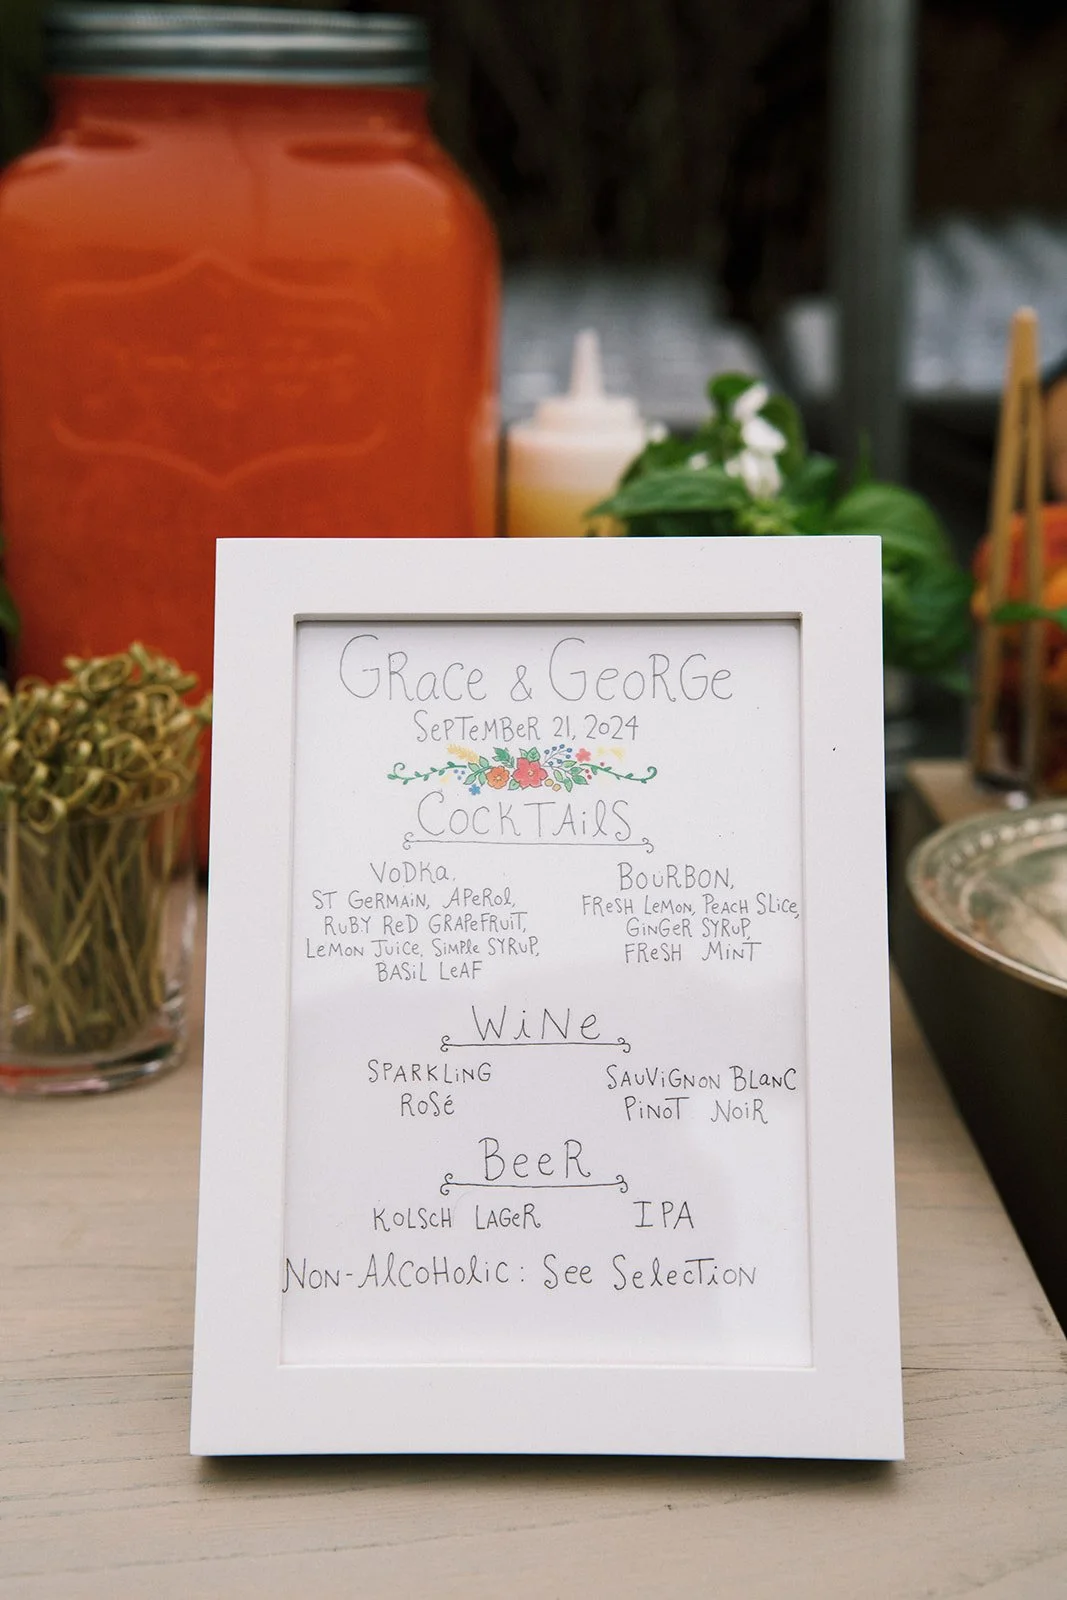 GRace & GeoRGe
SePTeMBeR 21, 2024
COCKTAilS
VODKa,
ST GeRMAiN, APeRol,
RuBY ReD GRAPeFRuiT,
LeMoN Juice, SiMPle SYRuP,
BASiL LeAF
BouRBON,
FResH LeMoN, PeacH Slice,
GiNGeR SYRuP,
FReSH MiNT
WiNe
SPARKLiNG
RoSé
SAuViGNON BLaNC
PiNOT NoiR
BeeR
KOLSCH LAGeR
IPA
NoN-AlCoHolic: See SelecTioN